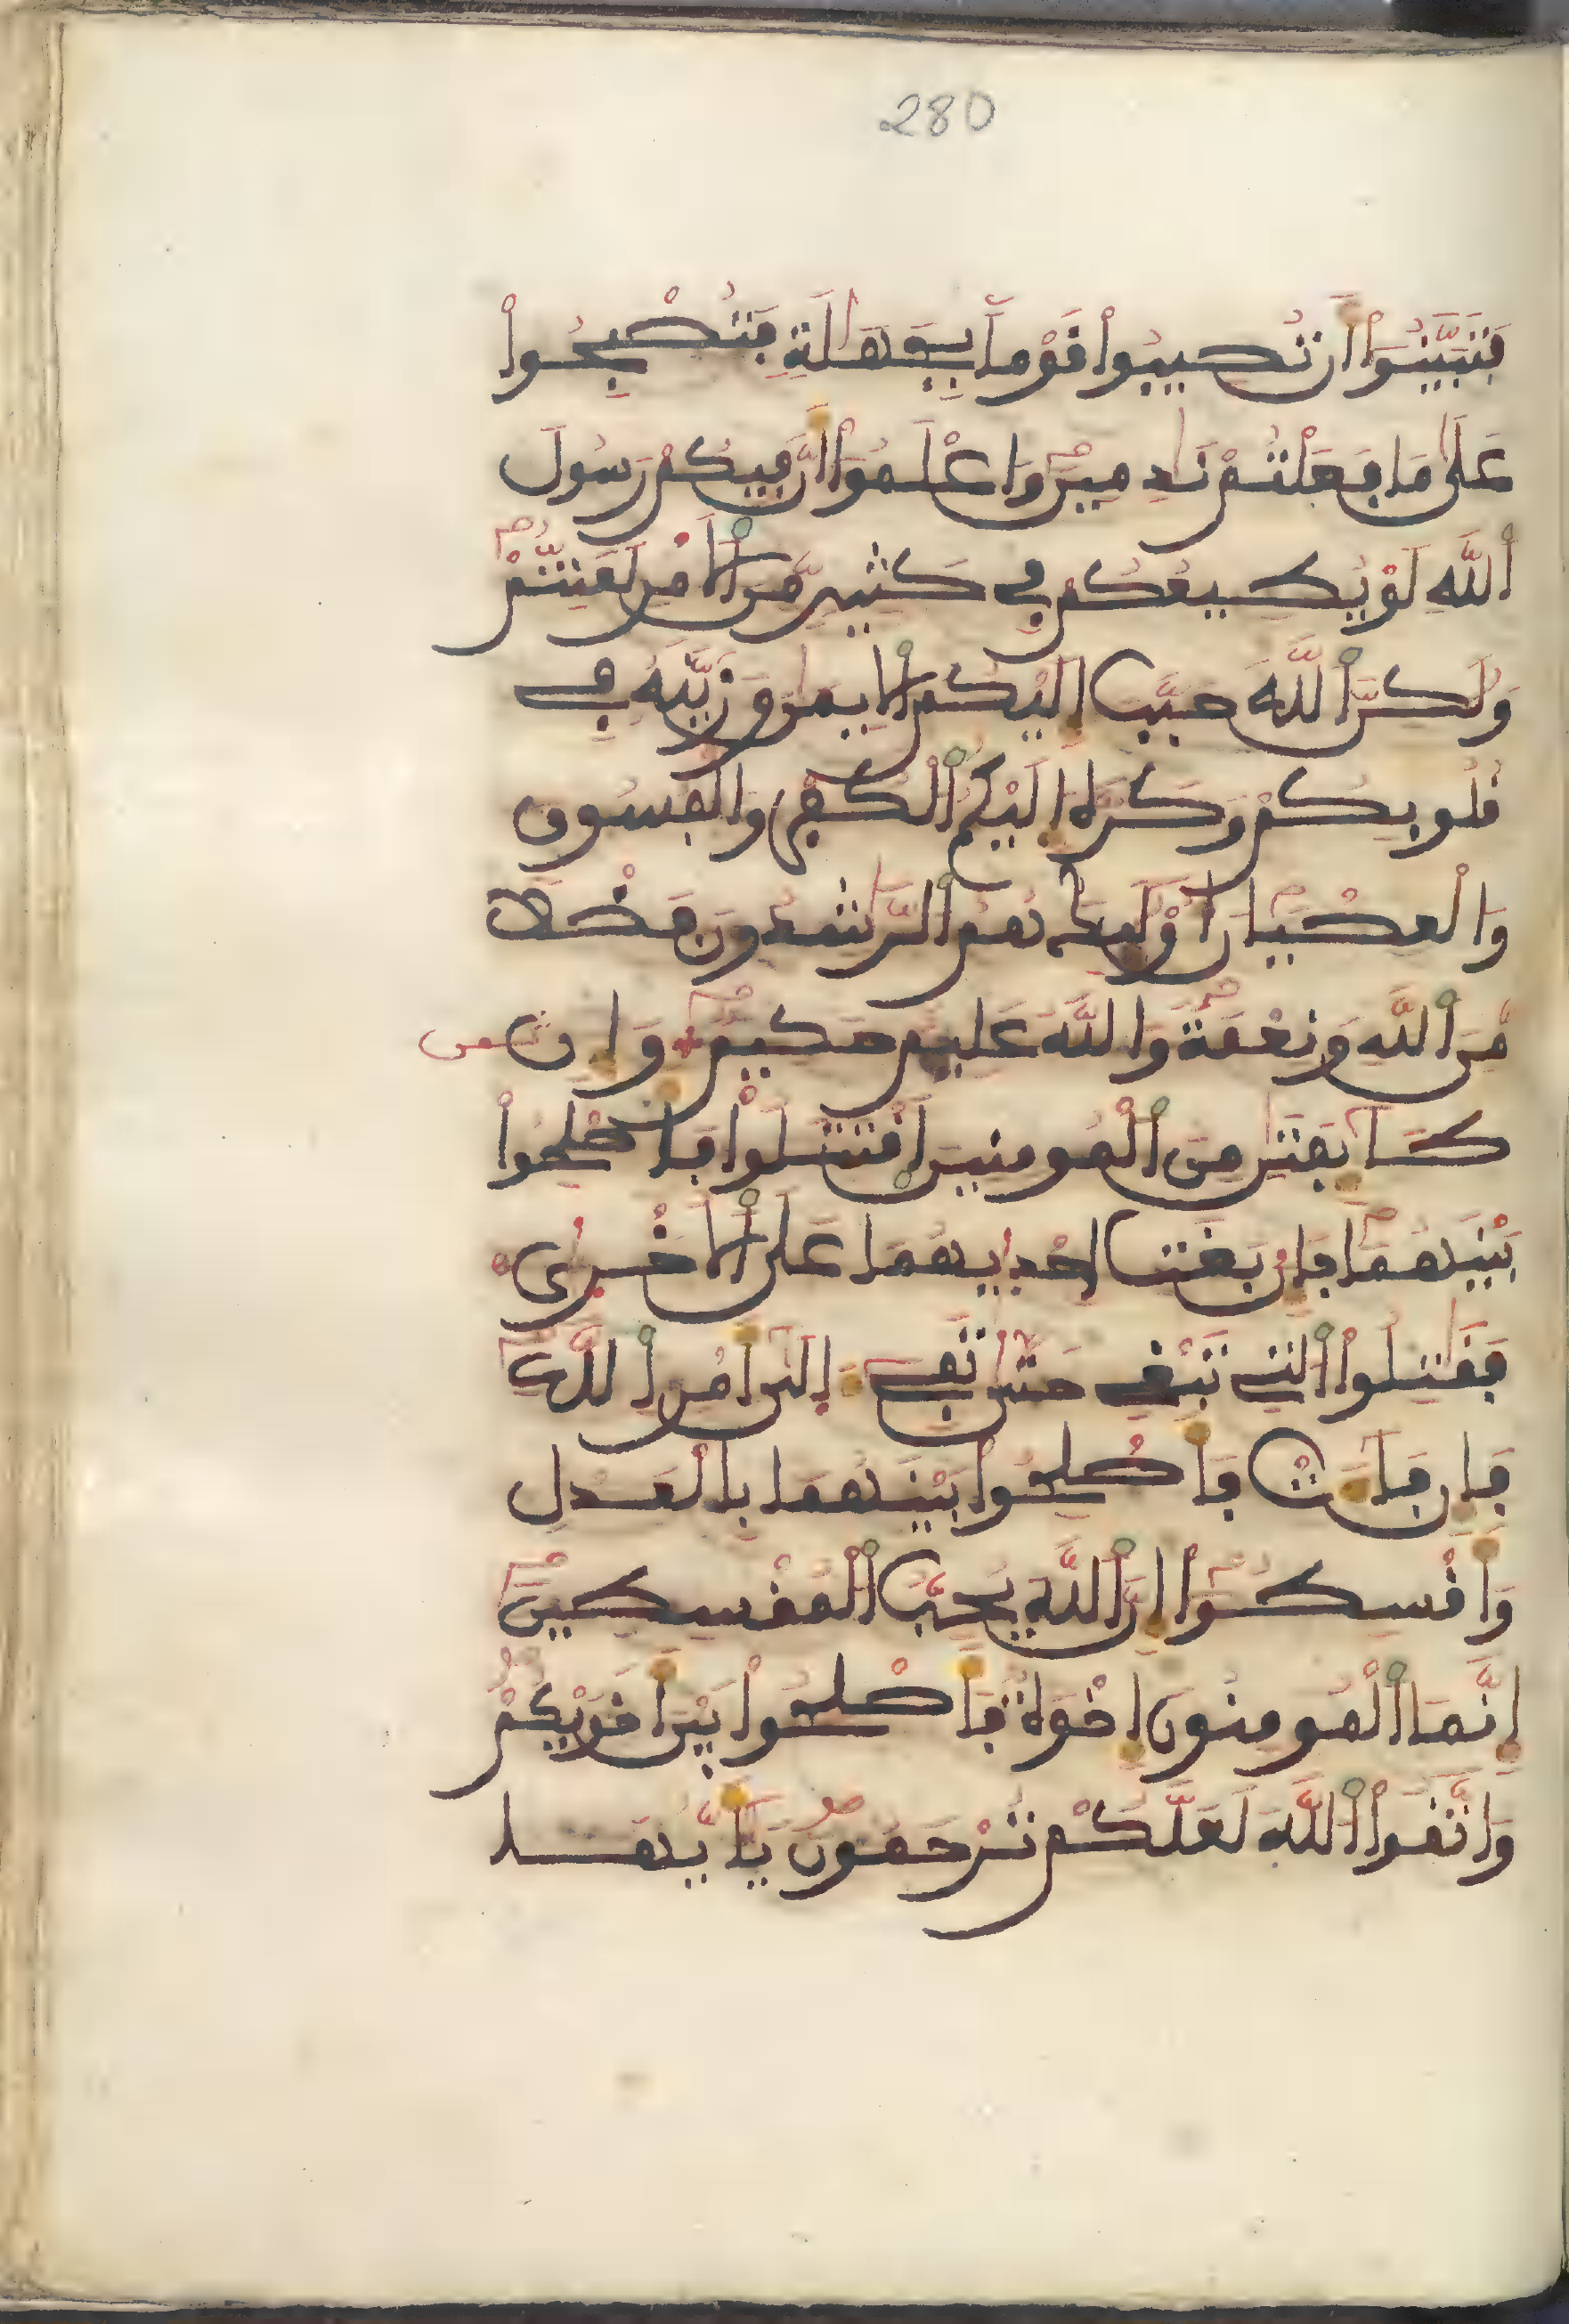 280
فَتَبَيَّنُوٓا۟ أَن تُصِيبُوا۟ قَوْمًۢا بِجَهَٰلَةٍ فَتُصْبِحُوا۟
عَلَىٰ مَا فَعَلْتُمْ نَٰدِمِينَ وَاعْلَمُوٓا۟ أَنَّ فِيكُمْ رَسُولَ
اَ۬للَّهِ لَوْ يُطِيعُكُمْ فِے كَثِيرٍ مِّنَ اَ۬لَامْرِ لَعَنِتُّمْ
وَلَٰكِنَّ اَ۬للَّهَ حَبَّبَ إِلَيْكُمُ اُ۬لِايمَٰنَ وَزَيَّنَهُۥ فِے
قُلُوبِكُمْ وَكَرَّهَ إِلَيْكُمُ اُ۬لْكُفْرَ وَالْفُسُوقَ
وَالْعِصْيَانَ أُو۟لَٰٓئِكَ هُمُ اُ۬لرَّٰشِدُونَ فَضْلًا
مِّنَ اَ۬للَّهِ وَنِعْمَةً وَاللَّهُ عَلِيمٌ حَكِيمٌ وَإِن
طَآئِفَتَٰنِ مِنَ اَ۬لْمُومِنِينَ اَ۪قْتَتَلُوا۟ فَأَصْلِحُوا۟
بَيْنَهُمَا فَإِنۢ بَغَتِ اِحْدَىٰهُمَا عَلَى اَ۬لُاخْرَىٰ
فَقَٰتِلُوا۟ اُ۬لتِے تَبْغِے حَتَّىٰ تَفِےٓءَ الَىٰٓ أَمْرِ اِ۬للَّهِ
فَإِن فَآءَتْ فَأَصْلِحُوا۟ بَيْنَهُمَا بِالْعَدْلِ
وَأَقْسِطُوٓا۟ إِنَّ اَ۬للَّهَ يُحِبُّ اُ۬لْمُقْسِطِينَ
إِنَّمَا اَ۬لْمُومِنُونَ إِخْوَةٌ فَأَصْلِحُوا۟ بَيْنَ أَخَوَيْكُمْ
وَاتَّقُوا۟ اُ۬للَّهَ لَعَلَّكُمْ تُرْحَمُونَ يَٰٓأَيُّهَا